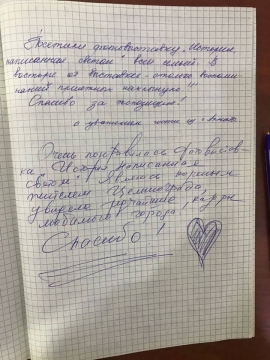 Посетили фотовыставку „История
написанная светом" всей семьёй. В
восторге от выставки - столько воспоми-
наний приятных нахлынуло!!!
Спасибо за экспозицию!
с уважением
Очень понравилась фотовыстав-
ка "История написанная
светом" Являюсь коренным
жителем Целинограда,
увидела редчайшие кадры
любимого города
Спасибо!